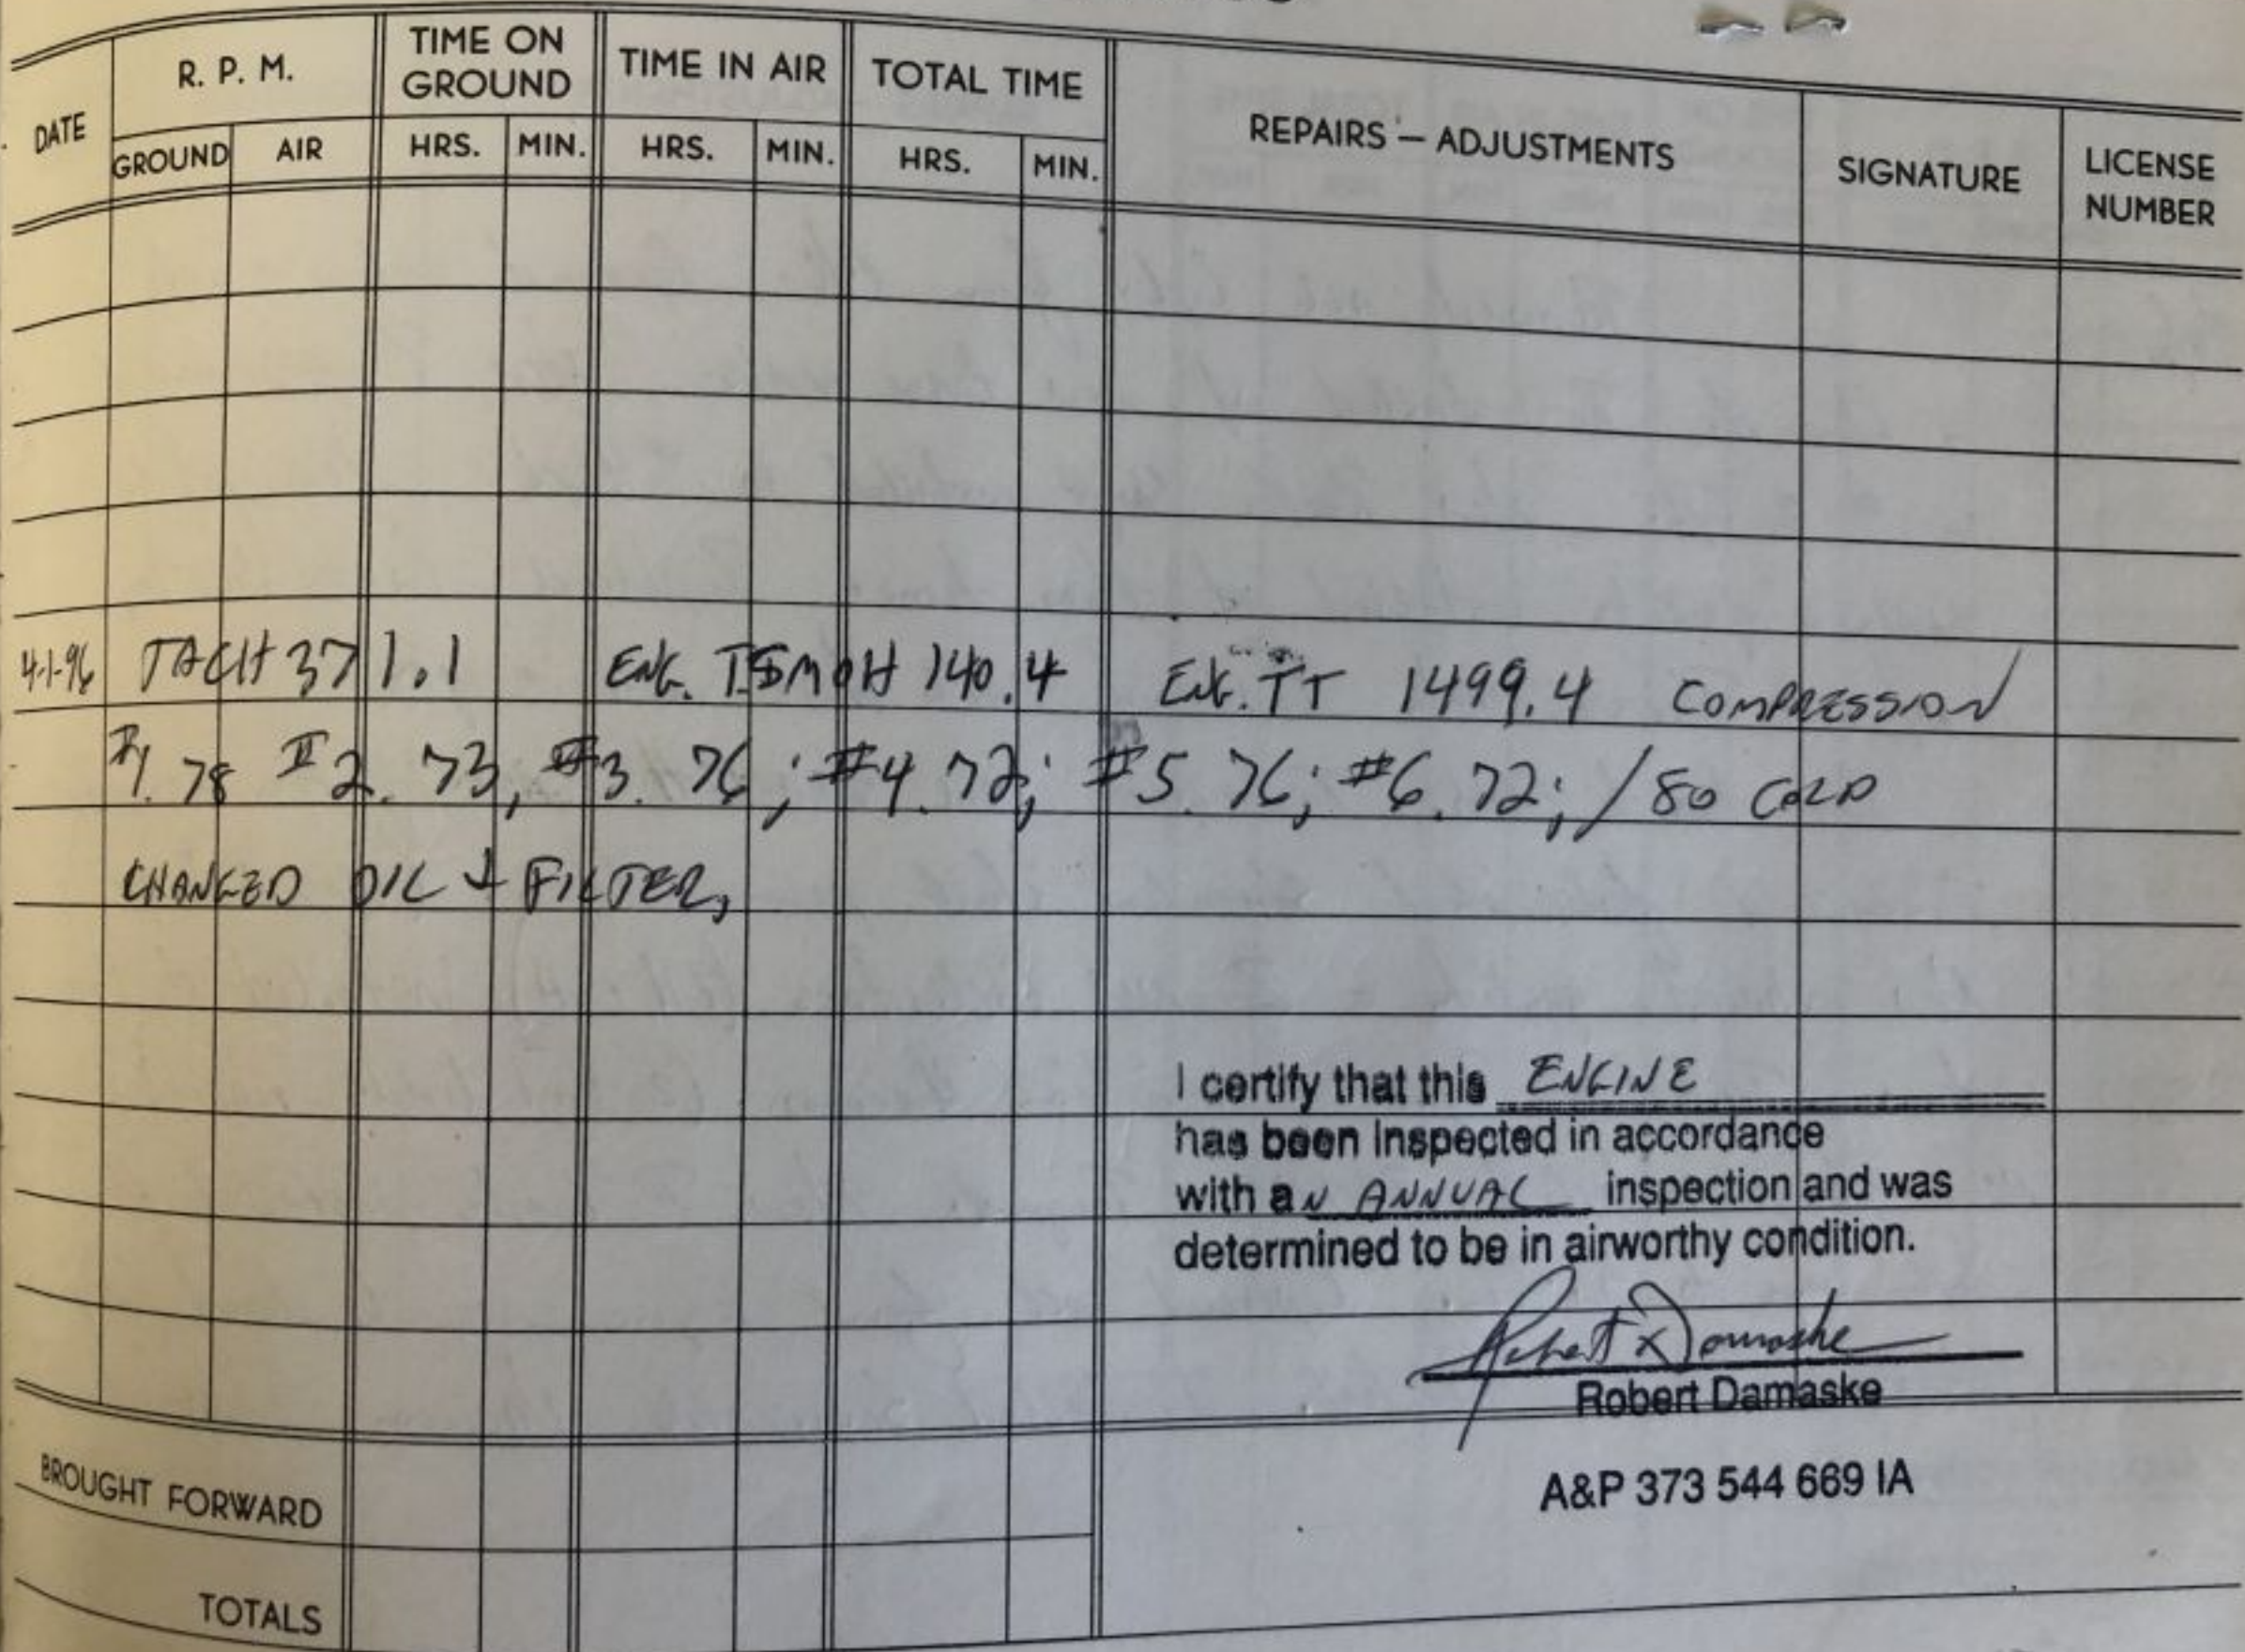 DATE
R. P. M.
TIME ON GROUND
TIME IN AIR
TOTAL TIME
REPAIRS – ADJUSTMENTS
SIGNATURE
LICENSE NUMBER
GROUND AIR HRS. MIN. HRS. MIN. HRS. MIN.
4-1-96 TACH 371.1 ENG. TSMOH 140.4 ENG. TT 1499.4 COMPRESSION
#1. 78 #2. 73, #3. 76; #4. 72; #5. 76; #6. 72; /80 COLD
CHANGED OIL & FILTER,
I certify that this ENGINE
has been inspected in accordance
with an ANNUAL inspection and was
determined to be in airworthy condition.
Robert Damaske
Robert Damaske
A&P 373 544 669 IA
BROUGHT FORWARD
TOTALS